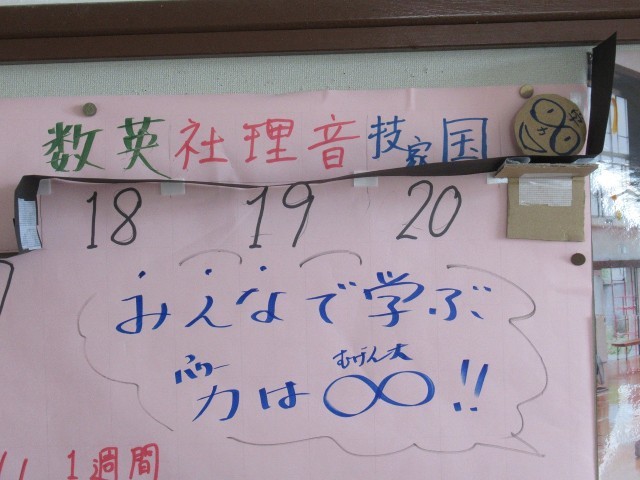 数英社理音技家国
18 19 20
みんなで学ぶ
パワー
むげん大
力は∞!!
1週間